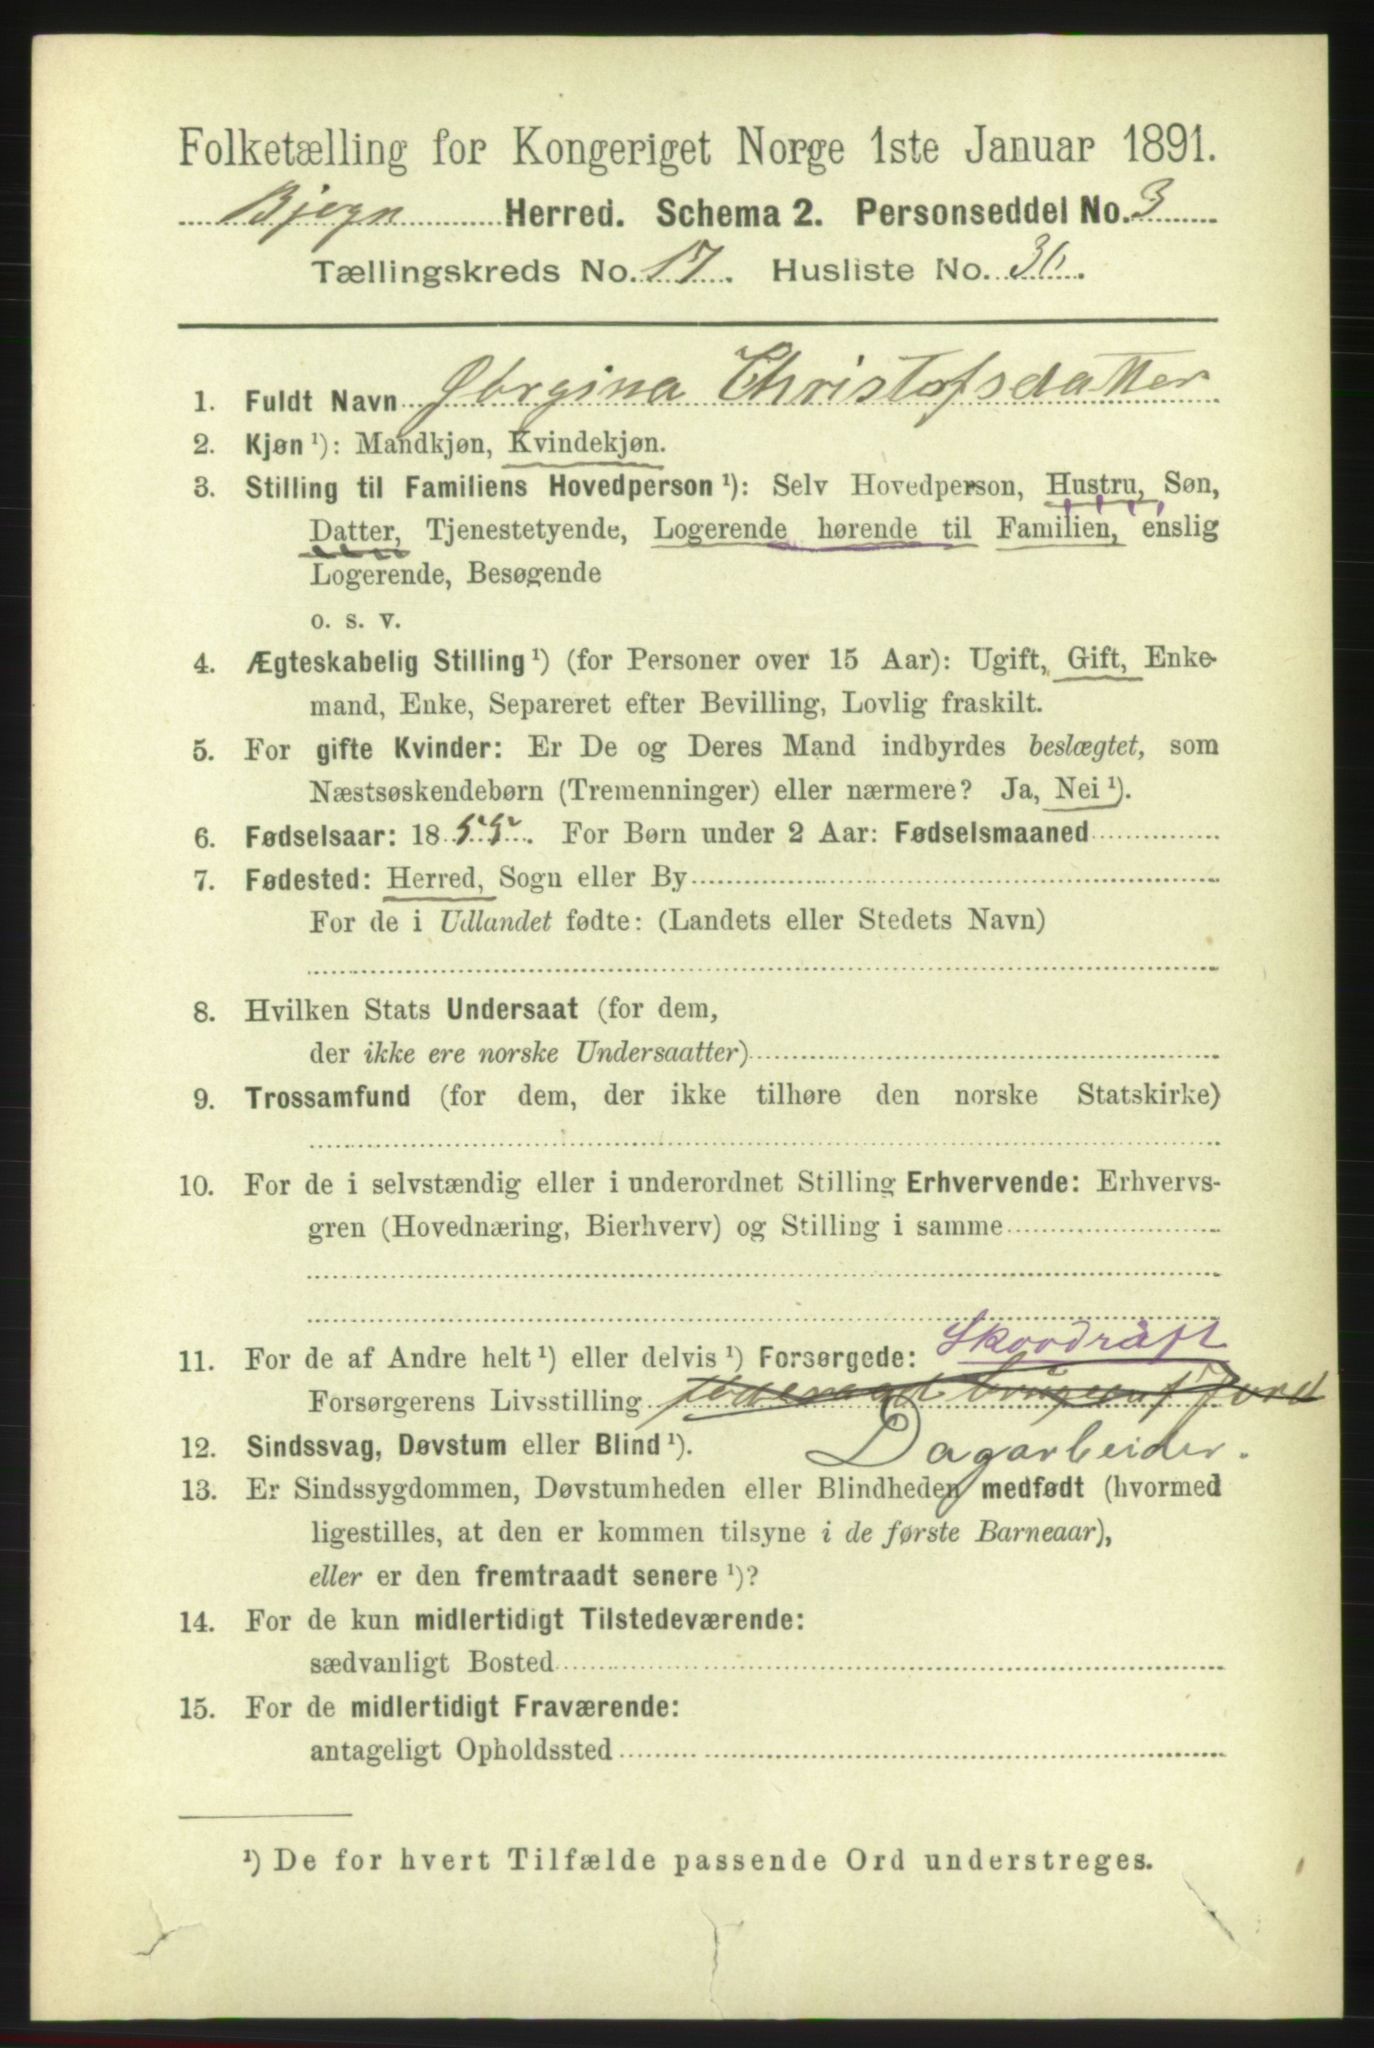 Folketælling for Kongeriget Norge 1ste Januar 1891.
Herred. Schema 2. Personseddel No. 3
Tællingskreds No. 17. Husliste No. 36.
1. Fuldt Navn Jørgina Christofsdatter
2. Kjøn ¹): Mandkjøn, Kvindekjøn.
3. Stilling til Familiens Hovedperson ¹): Selv Hovedperson, Hustru, Søn,
Datter, Tjenestetyende, Logerende hørende til Familien, enslig
Logerende, Besøgende
o. s. v.
4. Ægteskabelig Stilling ¹) (for Personer over 15 Aar): Ugift, Gift, Enke-
mand, Enke, Separeret efter Bevilling, Lovlig fraskilt.
5. For gifte Kvinder: Er De og Deres Mand indbyrdes beslægtet, som
Næstsøskendebørn (Tremenninger) eller nærmere? Ja, Nei ¹).
6. Fødselsaar: 1855. For Børn under 2 Aar: Fødselsmaaned
7. Fødested: Herred, Sogn eller By
For de i Udlandet fødte: (Landets eller Stedets Navn)
8. Hvilken Stats Undersaat (for dem,
der ikke ere norske Undersaatter)
9. Trossamfund (for dem, der ikke tilhøre den norske Statskirke)
10. For de i selvstændig eller i underordnet Stilling Erhvervende: Erhvervs-
gren (Hovednæring, Bierhverv) og Stilling i samme
Skovdrift
11. For de af Andre helt ¹) eller delvis ¹) Forsørgede:
Forsørgerens Livsstilling Jord
12. Sindssvag, Døvstum eller Blind ¹). Dagarbeider.
13. Er Sindssygdommen, Døvstumheden eller Blindheden medfødt (hvormed
ligestilles, at den er kommen tilsyne i de første Barneaar),
eller er den fremtraadt senere ¹)?
14. For de kun midlertidigt Tilstedeværende:
sædvanligt Bosted
15. For de midlertidigt Fraværende:
antageligt Opholdssted
¹) De for hvert Tilfælde passende Ord understreges.